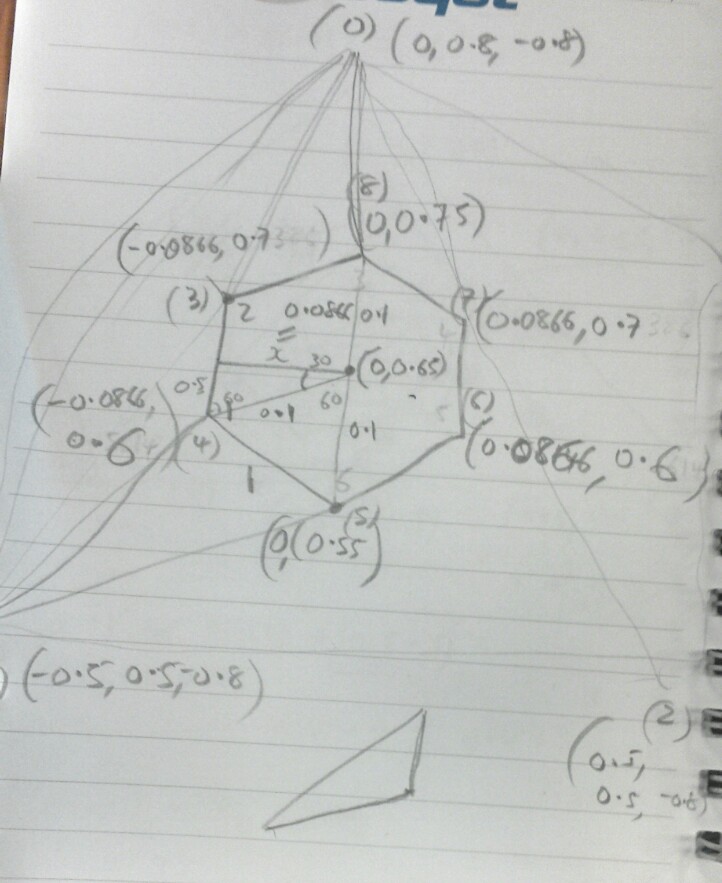 (0) (0, 0.8, -0.8)
(8)
(0, 0.75)
(-0.0866, 0.7)
(3) 2 0.0866 0.1 (7) (0.0866, 0.7
x 30 (0, 0.65)
(-0.0866, 0.6) 0.5 60 0.1 60 5 (6)
(4) 0.1 (0.0866, 0.6)
1 6
(5)
(0, (0.55)
) (-0.5, 0.5, -0.8)
(2)
(0.5,
0.5, -0.8)